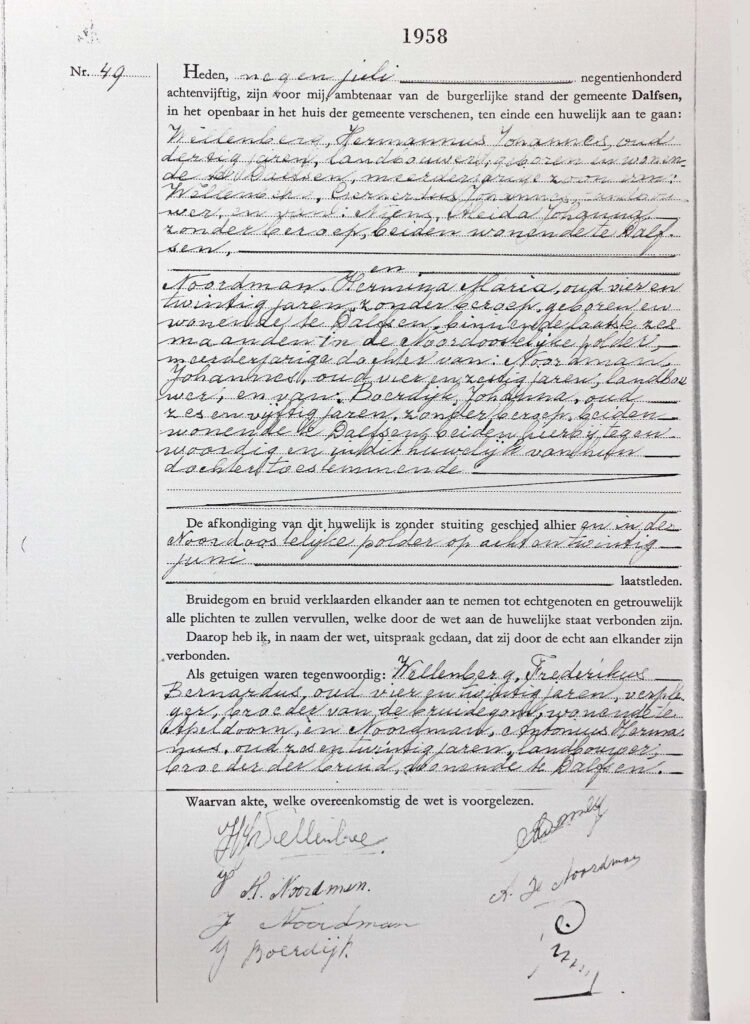 1958
Nr. 49
Heden, negen juli negentienhonderd
achtenvijftig, zijn voor mij, ambtenaar van de burgerlijke stand der gemeente Dalfsen,
in het openbaar in het huis der gemeente verschenen, ten einde een huwelijk aan te gaan:
Wellenberg, Hermannus Johannes, oud
dertig jaren, landbouwer, geboren en wonen-
de te Dalfsen, meerderjarige zoon van:
Wellenberg, Johannes,
wer, en van: Niens, Aleida Johanna,
zonder beroep, beiden wonende te Dalf-
sen,
en
Noordman, Hermina Maria, oud vier en
twintig jaren, zonder beroep, geboren en
wonende te Dalfsen, binnen de laatste zes
maanden in de Noordoostelijke polder,
meerderjarige dochter van: Noordman,
Johannes, oud vier en zestig jaren, landbou-
wer, en van: Boerdijk, Johanna, oud
zes en vijftig jaren, zonder beroep, beiden
wonende te Dalfsen, beiden hierbij tegen
woordig en in dit huwelijk van hun
dochter toestemmende
De afkondiging van dit huwelijk is zonder stuiting geschied alhier en in de
Noordoostelijke polder op acht en twintig
juni
laatstleden.
Bruidegom en bruid verklaarden elkander aan te nemen tot echtgenoten en getrouwelijk
alle plichten te zullen vervullen, welke door de wet aan de huwelijke staat verbonden zijn.
Daarop heb ik, in naam der wet, uitspraak gedaan, dat zij door de echt aan elkander zijn
verbonden.
Als getuigen waren tegenwoordig: Wellenberg, Frederikus
Bernardus, oud vier en twintig jaren, verple
ger, broeder van de bruidegom, wonende te
Apeldoorn, en Noordman, Antonius Herma
nus, oud zes en twintig jaren, landbouwer,
broeder der bruid, wonende te Dalfsen.
Waarvan akte, welke overeenkomstig de wet is voorgelezen.
H. M. Noordman.
A. H. Noordman
J Noordman
J Boerdijk